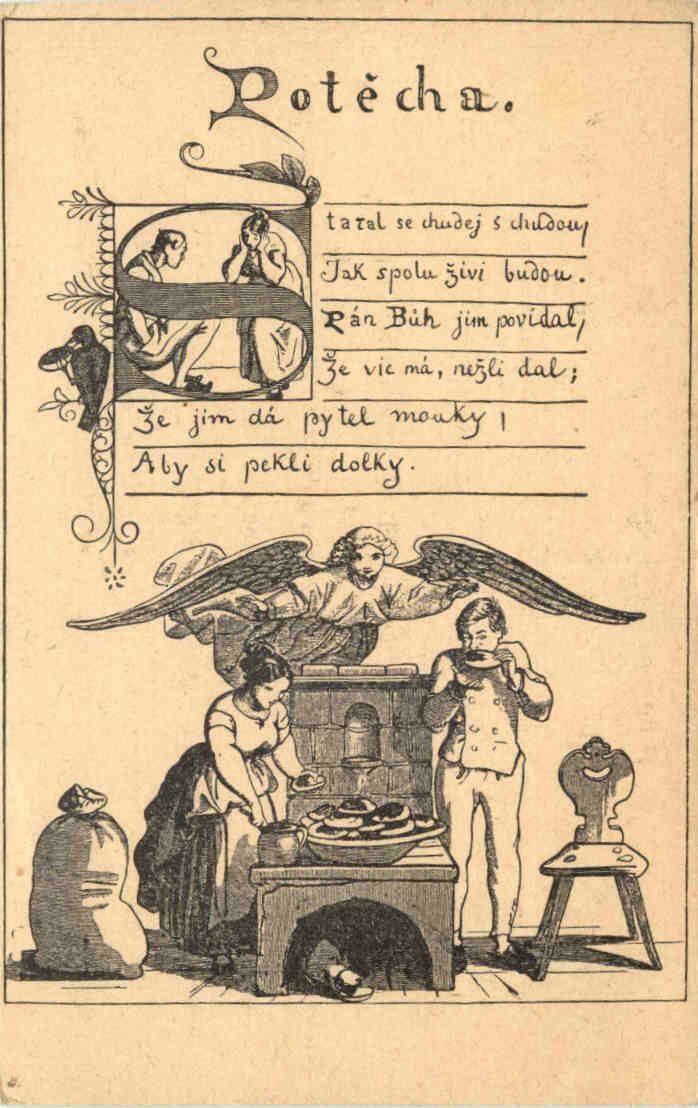 Potěcha.
Staral se chudej s chudou,
Jak spolu živi budou.
Pán Bůh jim povídal,
Že víc má, nežli dal;
Že jim dá pytel mouky,
Aby si pekli dolky.